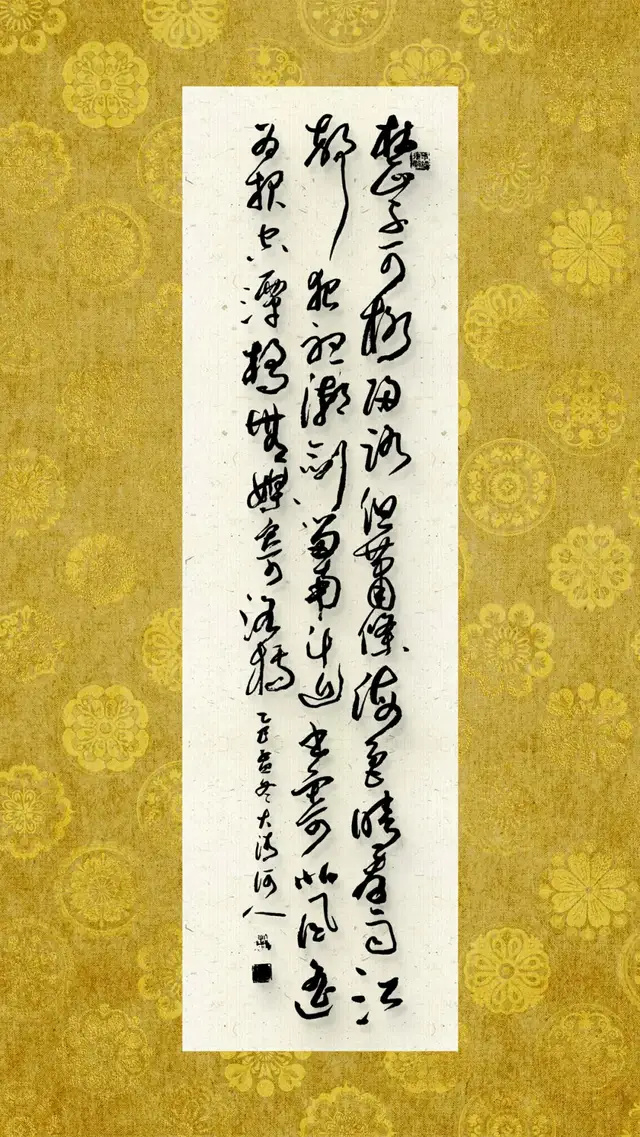 楚山不可極歸路但蕭條海色晴看雨江
聲夜聽潮劍留南斗近書寄北風遙
為報空潭橘無媒寄洛橋
冬大清河人